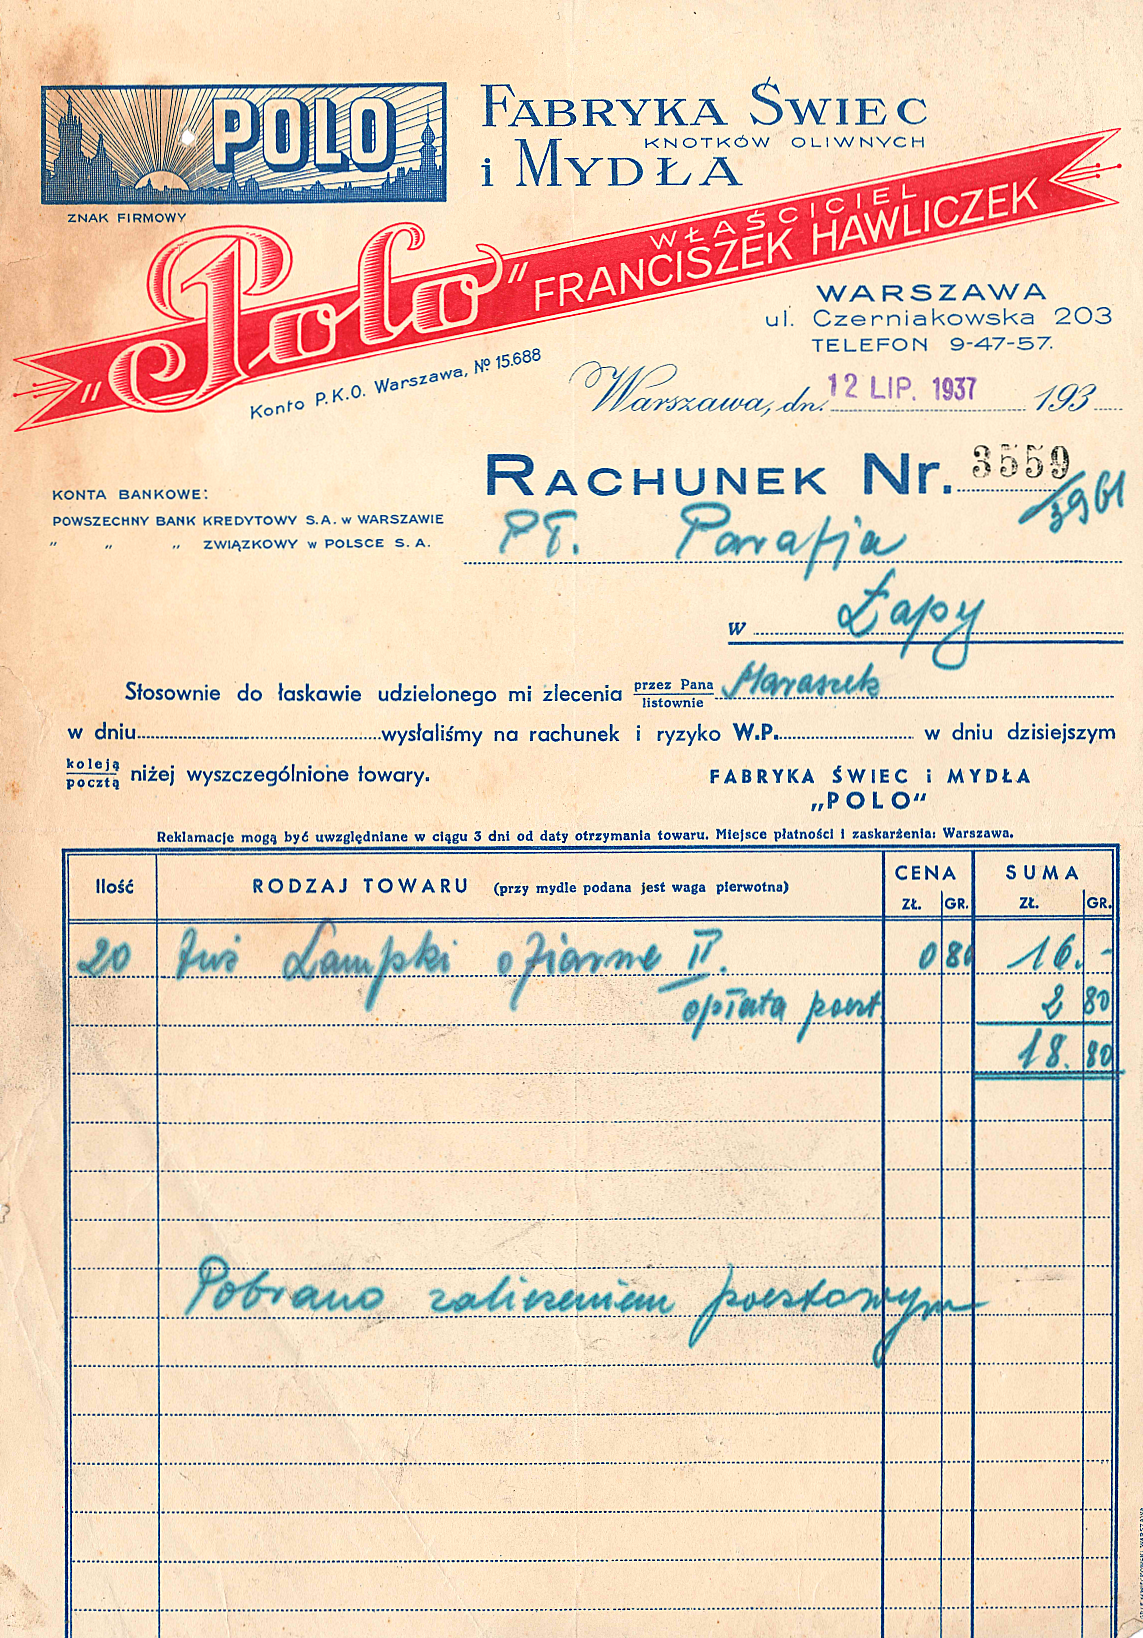 POLO
ZNAK FIRMOWY
FABRYKA ŚWIEC
KNOTKÓW OLIWNYCH
i MYDŁA
„Polo"
WŁAŚCICIEL
FRANCISZEK HAWLICZEK
WARSZAWA
ul. Czerniakowska 203
TELEFON 9-47-57.
Konto P.K.O. Warszawa, Nº 15.688
Warszawa, dn. 12 LIP. 1937 193
RACHUNEK Nr. 3559
/3961
KONTA BANKOWE:
POWSZECHNY BANK KREDYTOWY S.A. w WARSZAWIE
" " „ ZWIĄZKOWY w POLSCE S. A.
PT. Parafja
w Łapy
Stosownie do łaskawie udzielonego mi zlecenia przez Pana Maraszek
listownie
w dniu wysłaliśmy na rachunek i ryzyko W.P. w dniu dzisiejszym
koleją
pocztą niżej wyszczególnione towary.
FABRYKA ŚWIEC i MYDŁA
„POLO"
Reklamacje mogą być uwzględniane w ciągu 3 dni od daty otrzymania towaru. Miejsce płatności i zaskarżenia: Warszawa.
Ilość RODZAJ TOWARU (przy mydle podana jest waga pierwotna) CENA SUMA
ZŁ. GR. ZŁ. GR.
20 Lampki ofiarne II. 0 80 16. -
opłata poczt 2 80
18. 80
Pobrano zaliczeniem pocztowym